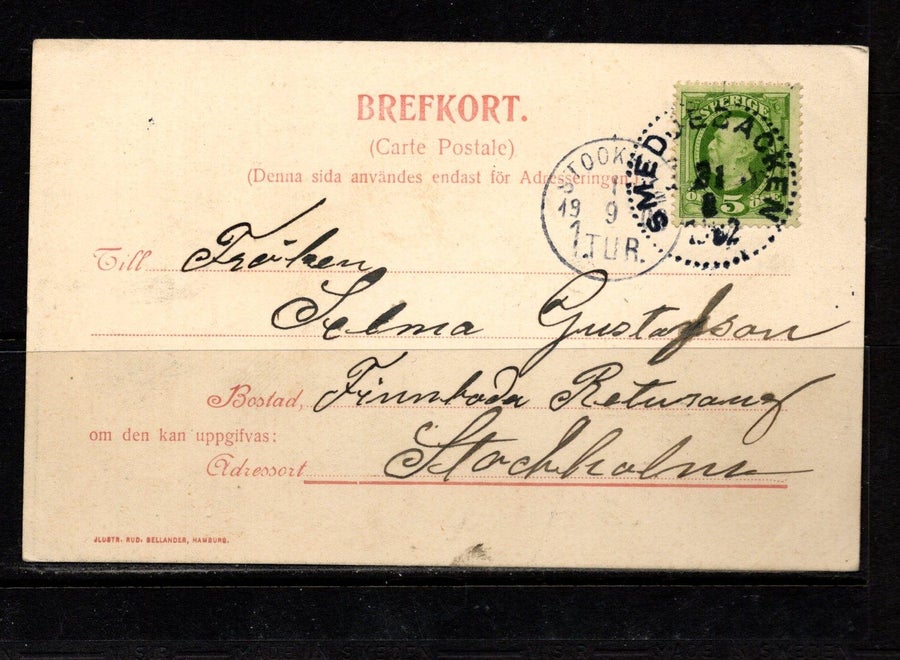 BREFKORT.
(Carte Postale)
(Denna sida användes endast för Adresseringen.)
SVERIGE
5
SMEDJEBACKEN
31
8
1902
STOCK
1
19 9
1.TUR.
Till Fröken
Selma Gustafson
Bostad, Finnboda
om den kan uppgifvas:
Adressort Stockholm
JLUSTR. RUD. BELLANDER, HAMBURG.